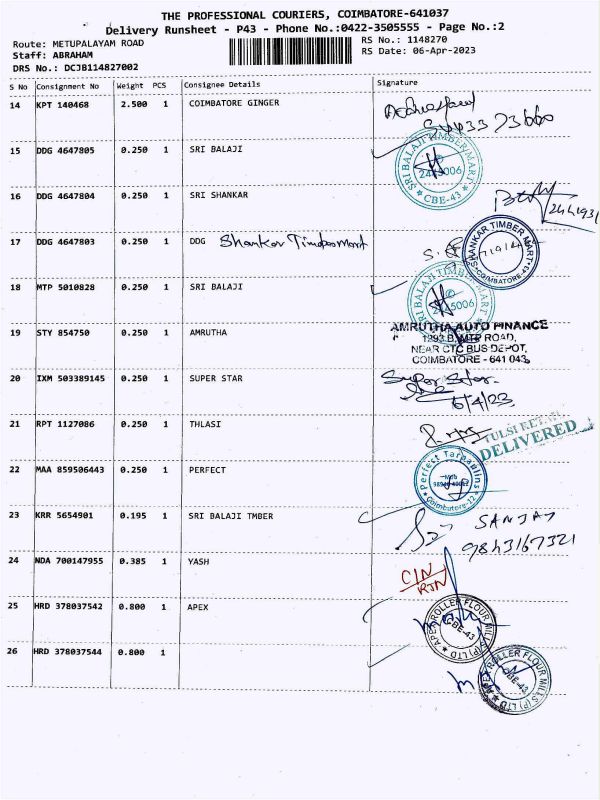 THE PROFESSIONAL COURIERS, COIMBATORE-641037
Delivery Runsheet - P43 - Phone No.:0422-3505555 - Page No.:2
Route: METUPALAYAM ROAD RS No.: 1148270
Staff: ABRAHAM RS Date: 06-Apr-2023
DRS No.: DCJB114827002
S No Consignment No Weight PCS Consignee Details Signature
14 KPT 140468 2.500 1 COIMBATORE GINGER
15 DDG 4647805 0.250 1 SRI BALAJI
SRI BALAJI TIMBER MART
CBE-43
16 DDG 4647804 0.250 1 SRI SHANKAR
17 DDG 4647803 0.250 1 DDG Shankar Timber Mart
SHANKAR TIMBER MART
COIMBATORE-43
18 MTP 5010828 0.250 1 SRI BALAJI
SRI BALAJI TIMBER MART
19 STY 854750 0.250 1 AMRUTHA
AMRUTHA AUTO FINANCE
1293 B, MTP ROAD,
NEAR CTC BUS DEPOT,
COIMBATORE - 641 043
20 IXM 503389145 0.250 1 SUPER STAR
Super Star
6/4/23
21 RPT 1127086 0.250 1 THLASI
TULSI RETAIL
DELIVERED
22 MAA 859506443 0.250 1 PERFECT
Perfect Tarpaulins
Coimbatore-12
23 KRR 5654901 0.195 1 SRI BALAJI TMBER
SANJAY
9843167321
24 NDA 700147955 0.385 1 YASH
CIN
RTN
25 HRD 378037542 0.800 1 APEX
APEX ROLLER FLOUR MILLS (P) LTD
CBE-43
26 HRD 378037544 0.800 1
APEX ROLLER FLOUR MILLS (P) LTD
CBE-43